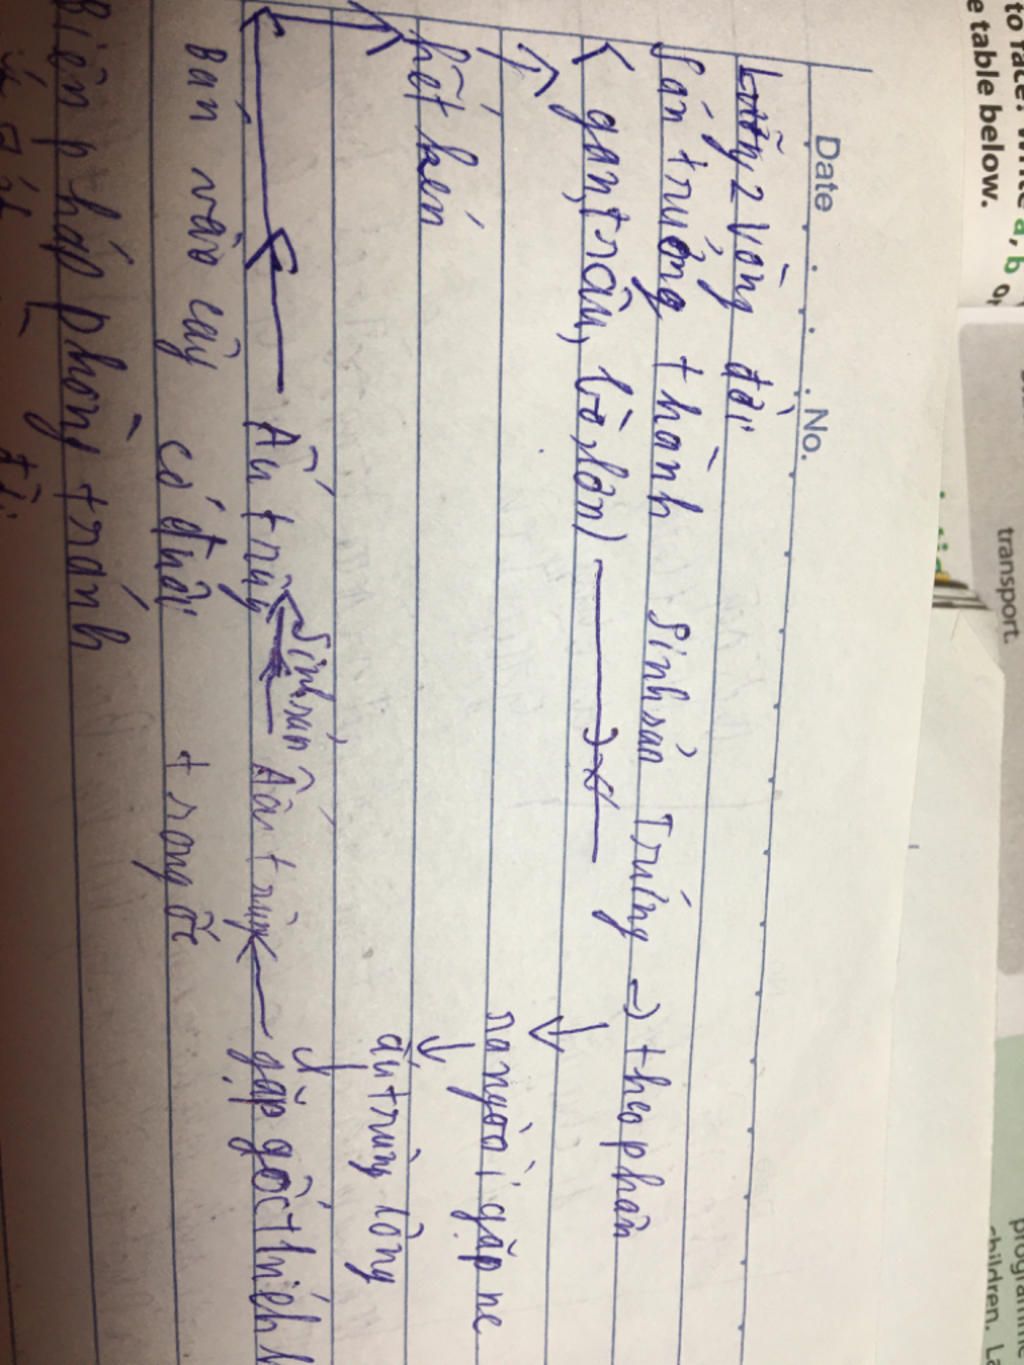 to face. Write a, b or
e table below.
transport.
programme
children. La
Date No.
Lưỡng 2 vòng đời
Sán trưởng thành sinh sản Trứng => theo phân
( gan, trâu, bò, lợn)
ra ngoài gặp nc
kết kén
ấu trùng lông
Ấu trùng sinh sản Ấu trùng gặp ốc thích h
Bám vào cây có đuôi trong ốc
Biện pháp phòng tránh